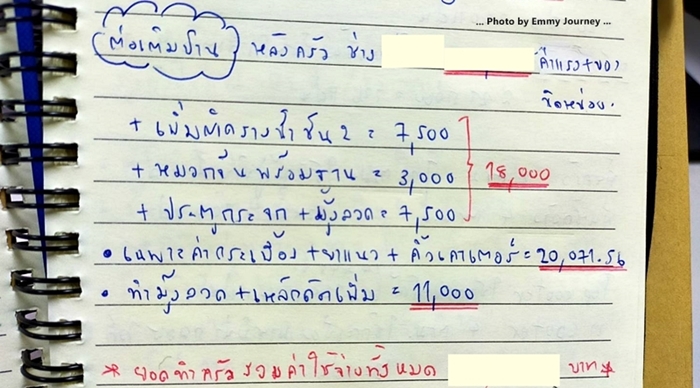 ... Photo by Emmy Journey ...
ต่อเติมบ้าน หลังครัว ช่าง (ค่าแรง+ของ
นิดหน่อย.
+ เพิ่มติดรางน้ำชั้น 2 = 7,500
+ หมวกจีนพร้อมฐาน = 3,000 18,000
+ ประตูกระจก + มุ้งลวด = 7,500
• เฉพาะค่ากระเบื้อง + ยาแนว + คิ้วเคาเตอร์ = 20,071.56
• ทำมุ้งลวด + เหล็กดัดเพิ่ม = 11,000
* ยอดทำครัวรวมค่าใช้จ่ายทั้งหมด บาท *